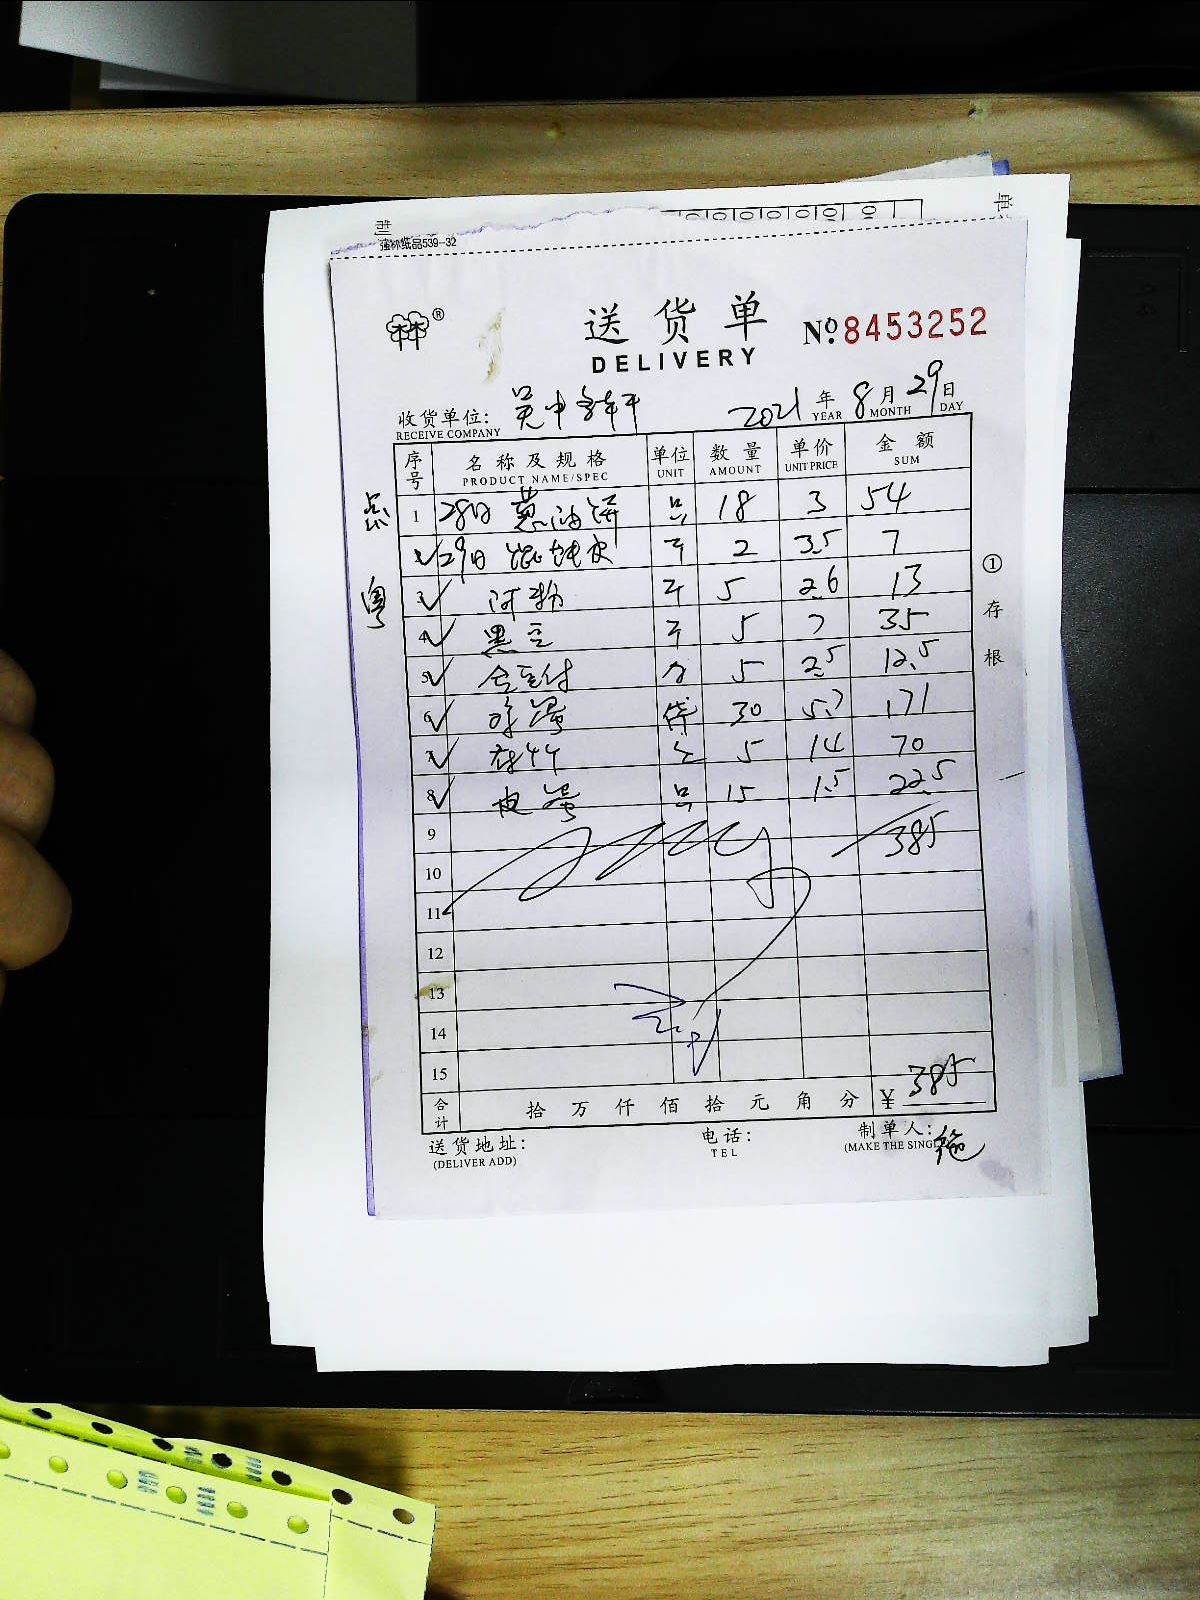 强林纸品539-32
林®
送货单
DELIVERY
№ 8453252
收货单位: 吴中
RECEIVE COMPANY
2021 年 8 月 29 日
YEAR MONTH DAY
序号 名称及规格 单位 数量 单价 金额
PRODUCT NAME/SPEC UNIT AMOUNT UNIT PRICE SUM
点
1 28日 葱油饼 只 18 3 54
2 29日 馄饨皮 斤 2 3.5 7
粤
3 斤 5 2.6 13
4 黑豆 斤 5 7 35
5 5 2.5 12.5
6 蛋 袋 30 5.7 171
7 5 14 70
8 皮蛋 只 15 1.5 22.5
9 385
10
11
12
13
14
15
合计 拾 万 仟 佰 拾 元 角 分 ¥ 385
送货地址: 电话: 制单人:
(DELIVER ADD) TEL (MAKE THE SINGL
①存根